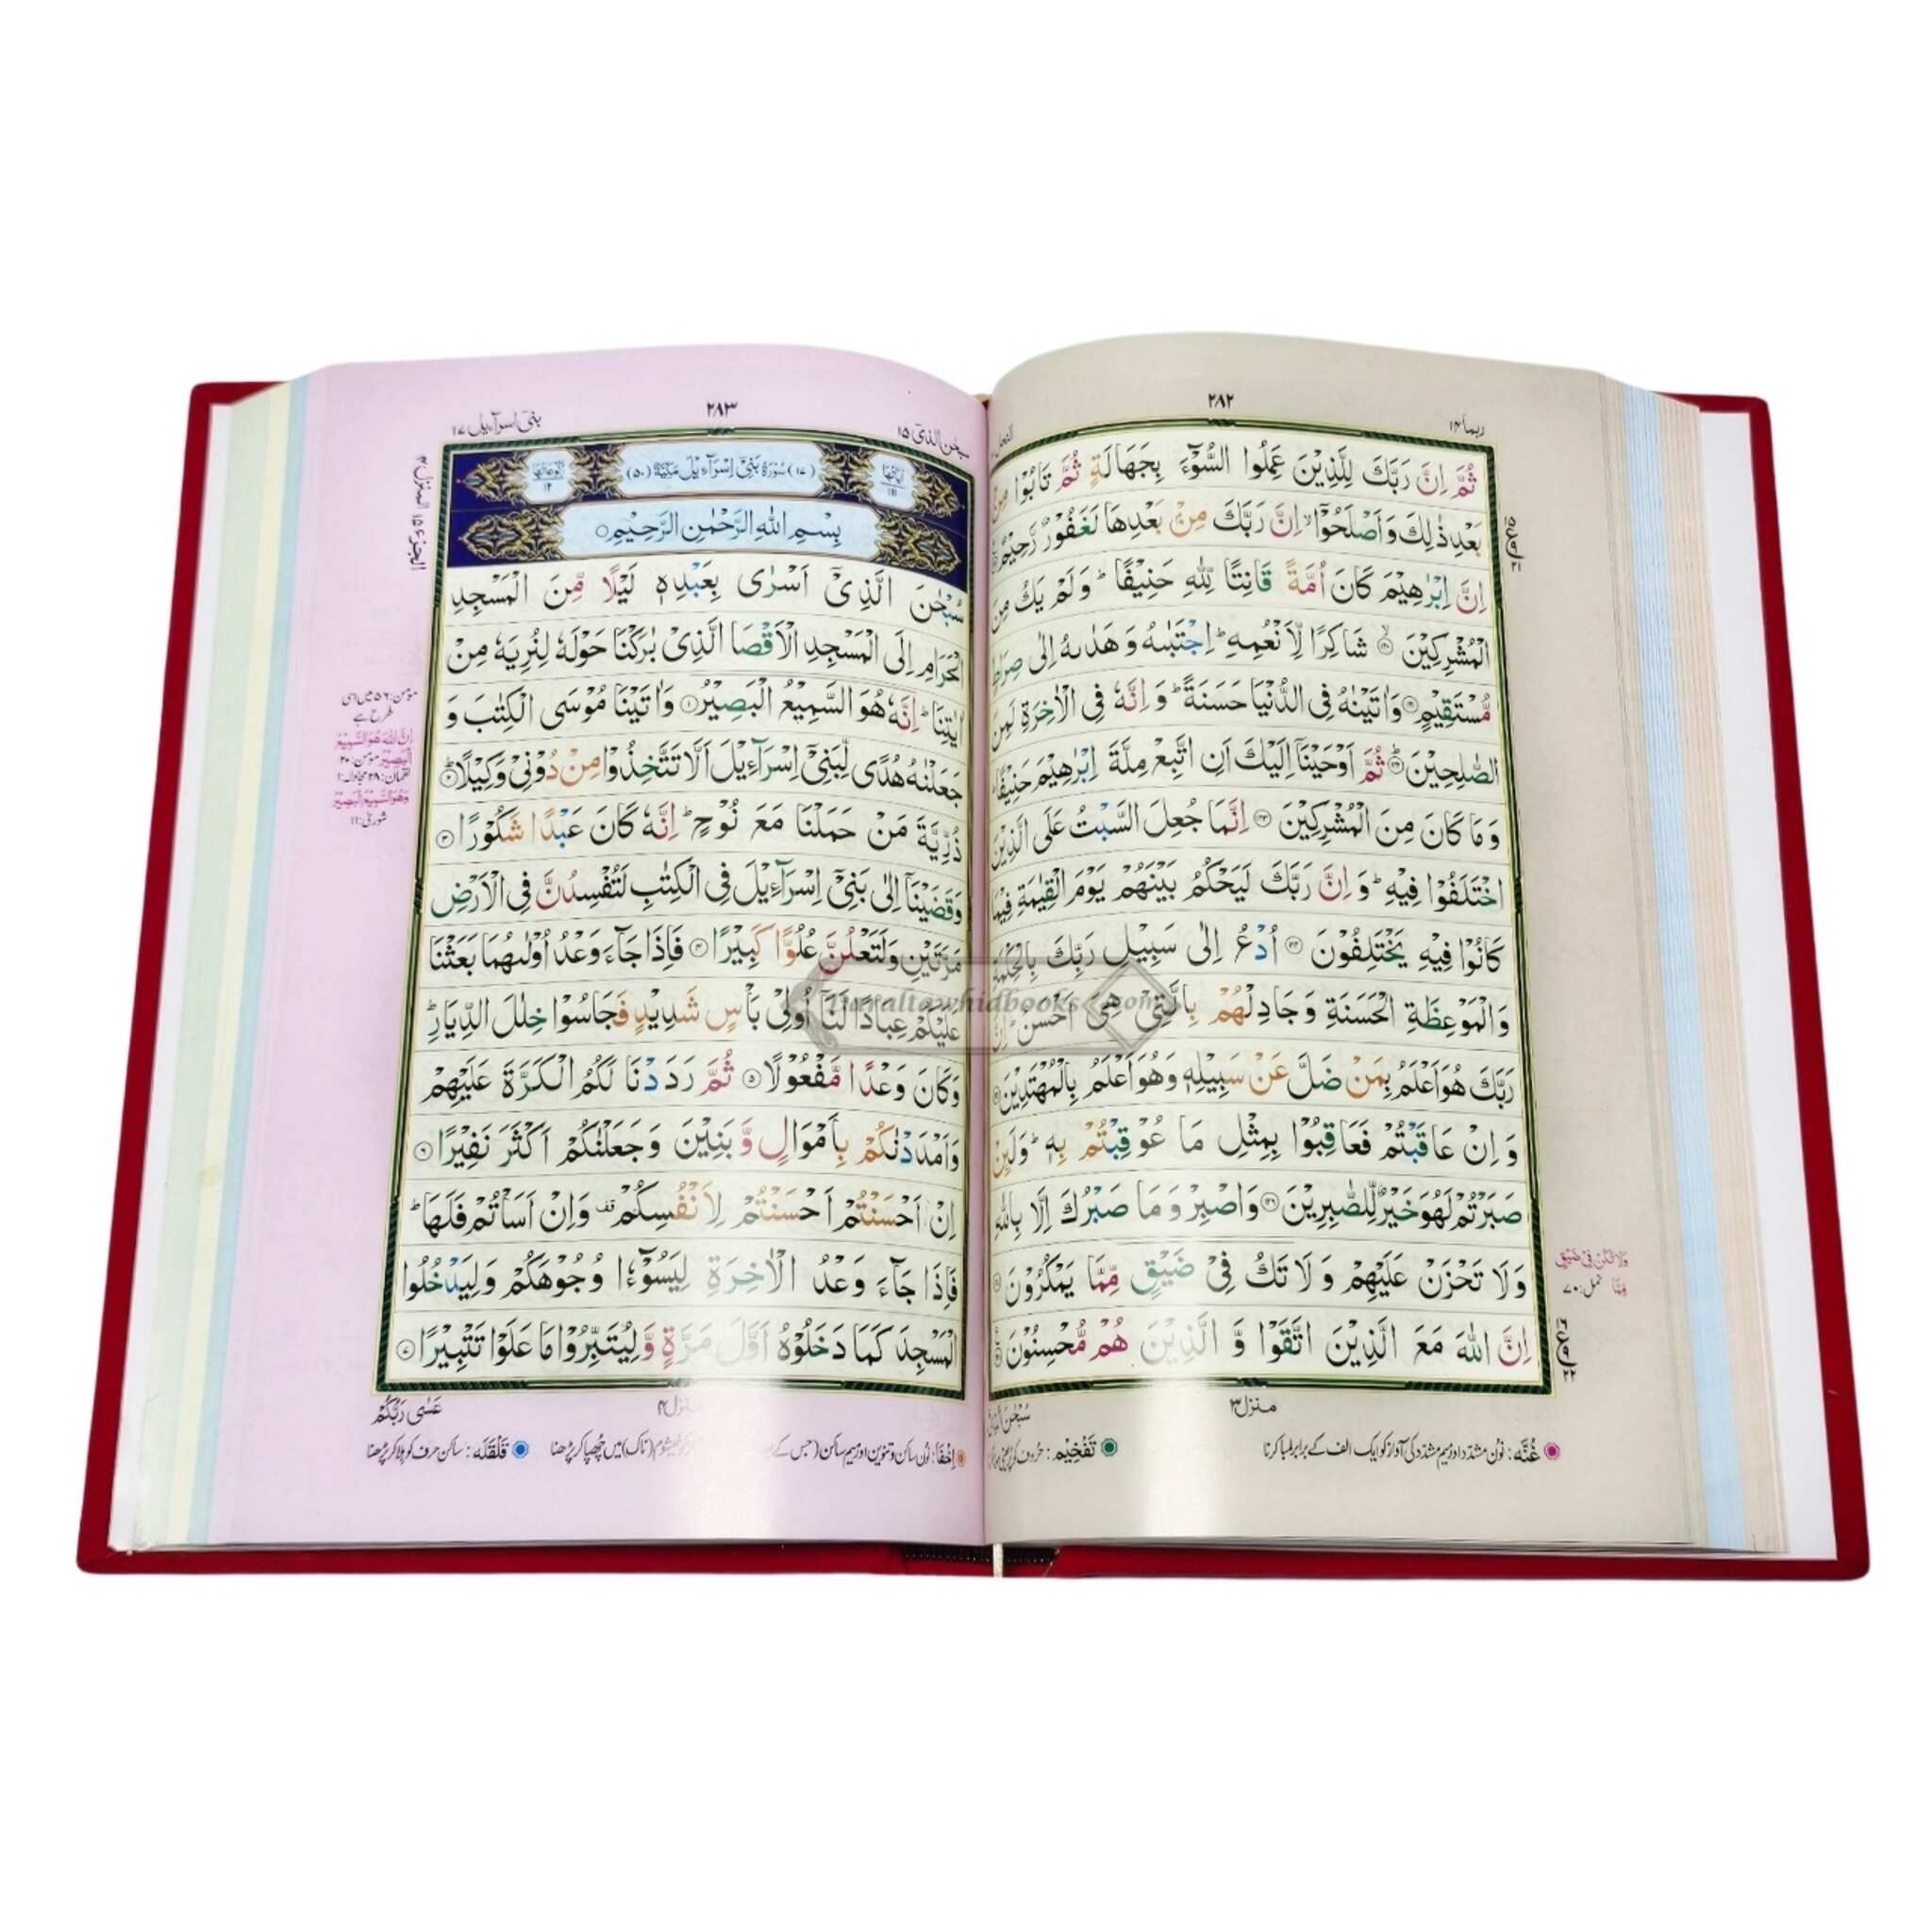 ربما ١٤
٢٨٢
ثُمَّ اِنَّ رَبَّكَ لِلَّذِيْنَ عَمِلُوا السُّوْٓءَ بِجَهَالَةٍ ثُمَّ تَابُوْا مِنْۢ
بَعْدِ ذٰلِكَ وَاَصْلَحُوْٓا ۙ اِنَّ رَبَّكَ مِنْۢ بَعْدِهَا لَغَفُوْرٌ رَّحِيْمٌ
اِنَّ اِبْرٰهِيْمَ كَانَ اُمَّةً قَانِتًا لِّلّٰهِ حَنِيْفًا ؕ وَلَمْ يَكُ مِنَ
الْمُشْرِكِيْنَ ۙ﴿۱۲۰﴾ شَاكِرًا لِّاَنْعُمِهٖ ؕ اِجْتَبٰىهُ وَهَدٰىهُ اِلٰى صِرَاطٍ
مُّسْتَقِيْمٍ ﴿۱۲۱﴾ وَاٰتَيْنٰهُ فِى الدُّنْيَا حَسَنَةً ؕ وَاِنَّهٗ فِى الْاٰخِرَةِ لَمِنَ
الصّٰلِحِيْنَ ؕ﴿۱۲۲﴾ ثُمَّ اَوْحَيْنَآ اِلَيْكَ اَنِ اتَّبِعْ مِلَّةَ اِبْرٰهِيْمَ حَنِيْفًا ؕ
وَمَا كَانَ مِنَ الْمُشْرِكِيْنَ ﴿۱۲۳﴾ اِنَّمَا جُعِلَ السَّبْتُ عَلَى الَّذِيْنَ
اخْتَلَفُوْا فِيْهِ ؕ وَاِنَّ رَبَّكَ لَيَحْكُمُ بَيْنَهُمْ يَوْمَ الْقِيٰمَةِ فِيْمَا
كَانُوْا فِيْهِ يَخْتَلِفُوْنَ ﴿۱۲۴﴾ اُدْعُ اِلٰى سَبِيْلِ رَبِّكَ بِالْحِكْمَةِ
وَالْمَوْعِظَةِ الْحَسَنَةِ وَجَادِلْهُمْ بِالَّتِىْ هِىَ اَحْسَنُ ؕ اِنَّ
رَبَّكَ هُوَ اَعْلَمُ بِمَنْ ضَلَّ عَنْ سَبِيْلِهٖ وَهُوَ اَعْلَمُ بِالْمُهْتَدِيْنَ
وَاِنْ عَاقَبْتُمْ فَعَاقِبُوْا بِمِثْلِ مَا عُوْقِبْتُمْ بِهٖ ؕ وَلَئِنْ
صَبَرْتُمْ لَهُوَ خَيْرٌ لِّلصّٰبِرِيْنَ ﴿۱۲۶﴾ وَاصْبِرْ وَمَا صَبْرُكَ اِلَّا بِاللّٰهِ
وَلَا تَحْزَنْ عَلَيْهِمْ وَلَا تَكُ فِىْ ضَيْقٍ مِّمَّا يَمْكُرُوْنَ
اِنَّ اللّٰهَ مَعَ الَّذِيْنَ اتَّقَوْا وَّالَّذِيْنَ هُمْ مُّحْسِنُوْنَ
وَلَا تَكُنْ فِىْ ضَيْقٍ
مِّمَّا نمل: ٧٠
٢٢
منزل ٣
غُنَّه: نون مشدد اور میم مشدد کی آواز کو ایک الف کے برابر لمبا کرنا
تَفْخِيْم: حروف کو
سبحٰن الذیٓ ١٥
٢٨٣
بنیٓ اسرآءیل ١٧
اٰيَاتُهَا ١١١
(١٧) سُوْرَةُ بَنِىْٓ اِسْرَآءِيْلَ مَكِّيَّةٌ (٥٠)
رُكُوْعَاتُهَا ١٢
بِسْمِ اللّٰهِ الرَّحْمٰنِ الرَّحِيْمِ
سُبْحٰنَ الَّذِىْٓ اَسْرٰى بِعَبْدِهٖ لَيْلًا مِّنَ الْمَسْجِدِ
الْحَرَامِ اِلَى الْمَسْجِدِ الْاَقْصَا الَّذِىْ بٰرَكْنَا حَوْلَهٗ لِنُرِيَهٗ مِنْ
اٰيٰتِنَا ؕ اِنَّهٗ هُوَ السَّمِيْعُ الْبَصِيْرُ ﴿۱﴾ وَاٰتَيْنَا مُوْسَى الْكِتٰبَ وَ
جَعَلْنٰهُ هُدًى لِّبَنِىْٓ اِسْرَآءِيْلَ اَلَّا تَتَّخِذُوْا مِنْ دُوْنِىْ وَكِيْلًا ؕ﴿۲﴾
ذُرِّيَّةَ مَنْ حَمَلْنَا مَعَ نُوْحٍ ؕ اِنَّهٗ كَانَ عَبْدًا شَكُوْرًا ﴿۳﴾
وَقَضَيْنَآ اِلٰى بَنِىْٓ اِسْرَآءِيْلَ فِى الْكِتٰبِ لَتُفْسِدُنَّ فِى الْاَرْضِ
مَرَّتَيْنِ وَلَتَعْلُنَّ عُلُوًّا كَبِيْرًا ﴿۴﴾ فَاِذَا جَآءَ وَعْدُ اُوْلٰىهُمَا بَعَثْنَا
عَلَيْكُمْ عِبَادًا لَّنَآ اُولِىْ بَاْسٍ شَدِيْدٍ فَجَاسُوْا خِلٰلَ الدِّيَارِ ؕ
وَكَانَ وَعْدًا مَّفْعُوْلًا ﴿۵﴾ ثُمَّ رَدَدْنَا لَكُمُ الْكَرَّةَ عَلَيْهِمْ
وَاَمْدَدْنٰكُمْ بِاَمْوَالٍ وَّبَنِيْنَ وَجَعَلْنٰكُمْ اَكْثَرَ نَفِيْرًا ﴿۶﴾
اِنْ اَحْسَنْتُمْ اَحْسَنْتُمْ لِاَنْفُسِكُمْ ۫ وَاِنْ اَسَاْتُمْ فَلَهَا ؕ
فَاِذَا جَآءَ وَعْدُ الْاٰخِرَةِ لِيَسُوْٓءٗا وُجُوْهَكُمْ وَلِيَدْخُلُوا
الْمَسْجِدَ كَمَا دَخَلُوْهُ اَوَّلَ مَرَّةٍ وَّلِيُتَبِّرُوْا مَا عَلَوْا تَتْبِيْرًا ﴿۷﴾
الجزء ١٥ المنزل ٤
مؤمن: ٥٦ میں اسی
طرح ہے
اِنَّ اللّٰهَ هُوَ السَّمِيْعُ
الْبَصِيْرُ مؤمن: ٢٠
لقمان: ٢٨ مجادلہ: ١
وَهُوَ السَّمِيْعُ الْبَصِيْرُ
شوریٰ: ١١
منزل ٤
عَسٰى رَبُّكُمْ
اِخْفَا: نون ساکن و تنوین اور میم ساکن (جس کے بعد (ناک) میں چھپا کر پڑھنا
قَلْقَلَه: ساکن حرف کو ہلا کر پڑھنا
Daraltawhidbooks.com